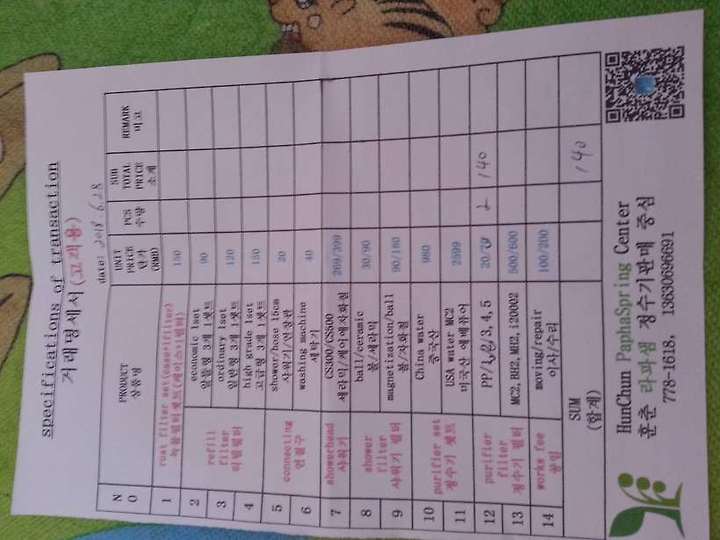 specifications of transaction
거래명세서(고객용)
date: 2018.6.28
NO PRODUCT 상품명 UNIT PRICE 단가 (RMB) PCS 수량 SUB TOTAL PRICE 소계 REMARK 비고
1 rust filter set(case+filter) 150
2 refill filter 리필필터 economic 1set 알뜰형 3개 1셋트 90
3 ordinary 1set 일반형 3개 1셋트 120
4 high grade 1set 고급형 3개 1셋트 150
5 connecting 연결구 shower/hose 15cm 샤워기/연장관 20
6 washing machine 세탁기 40
7 showerhead 샤워기 CS300/CS500 269/399
8 shower filter 샤워기 필터 ball/ceramic 볼/세라믹 30/90
9 magnetization/ball 볼/자화철 90/180
10 purifier set 정수기 셋트 China water 중국산 980
11 USA water MC2 미국산 2599
12 purifier filter 정수기 필터 PP/1,2/3,4,5 20/70 2 140
13 MC2, RH2, ME2, i20002 500/600
14 works fee 공임 moving/repair 이사/수리 100/200
SUM (합계) 140
HunChun PaphaSpring Center
훈춘 라파샘 정수기판매 중심
778-1618, 13630696691